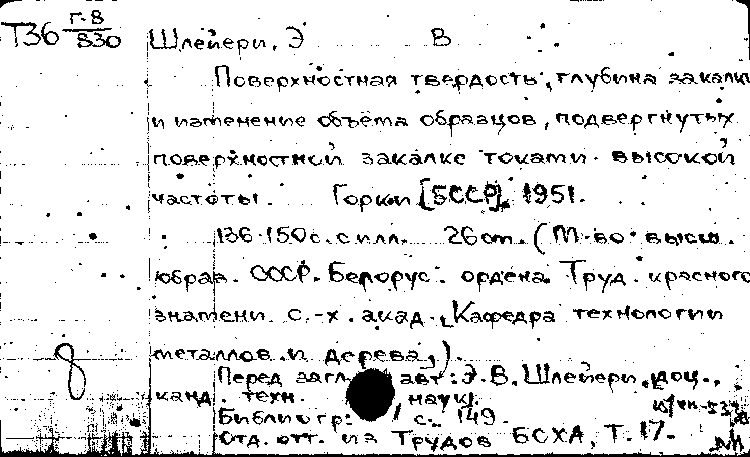 Т36 Г-8
830
Шлейери, Э В
Поверхностная твердость, глубина закалки
и изменение объёма образцов, подвергнутых
поверхностной закалке токами высокой
частоты. Горки [БССР], 1951.
136-150 с. с илл. 26 cm. (М-во высш.
образ. СССР. Белорус. ордена Труд. красного
знамени с.-х. акад., Кафедра технологии
металлов и дерева,).
8
Перед загл. авт: Э.В. Шлейери, доц.,
канд. техн. наук.
Библиогр: с. 149.
Отд. отт. из Трудов БСХА, Т. 17.